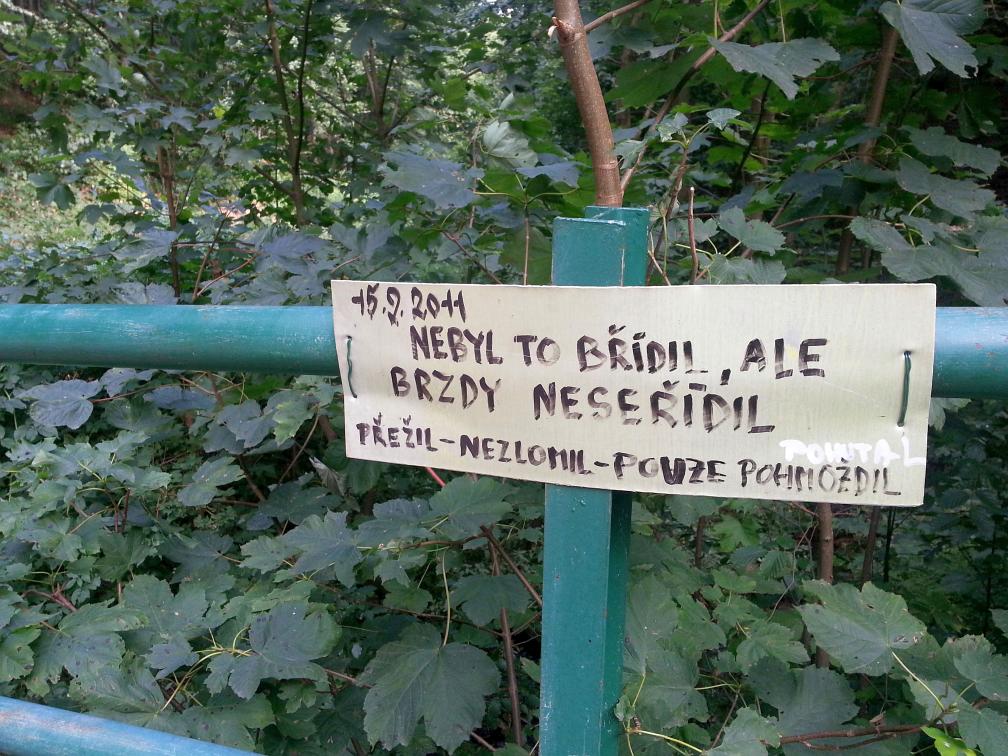 15.9.2011
NEBYL TO BŘÍDIL, ALE
BRZDY NESEŘÍDIL
PŘEŽIL-NEZLOMIL-POUZE POHMOŽDIL